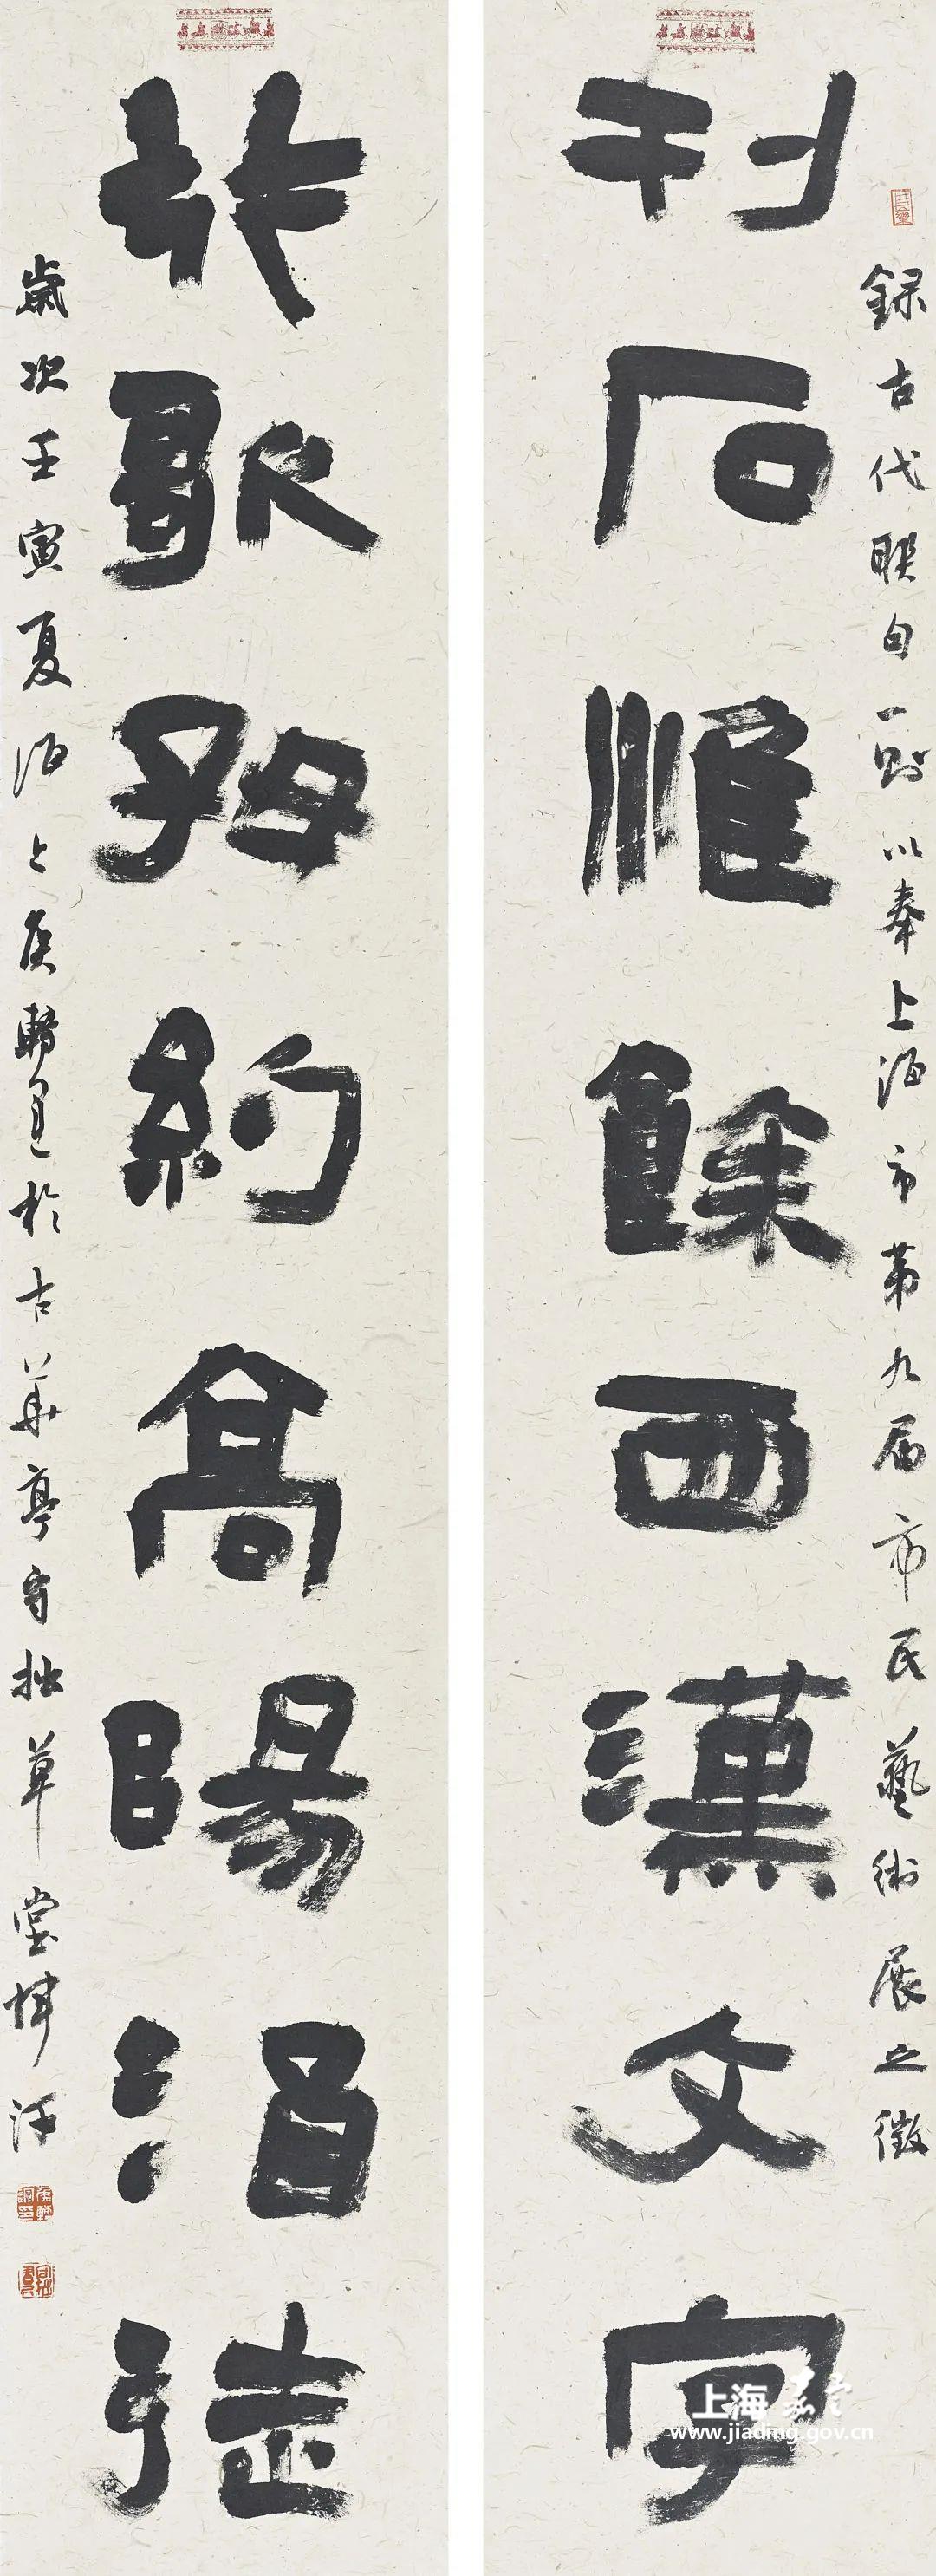 錄古代聯句一則以奉上海市第九屆市民藝術展之徵
刊石惟餘西漢文字
放歌好約高陽酒徒
歲次壬寅夏海上侯於古華亭守拙草堂揮汗
上海嘉定
www.jiading.gov.cn